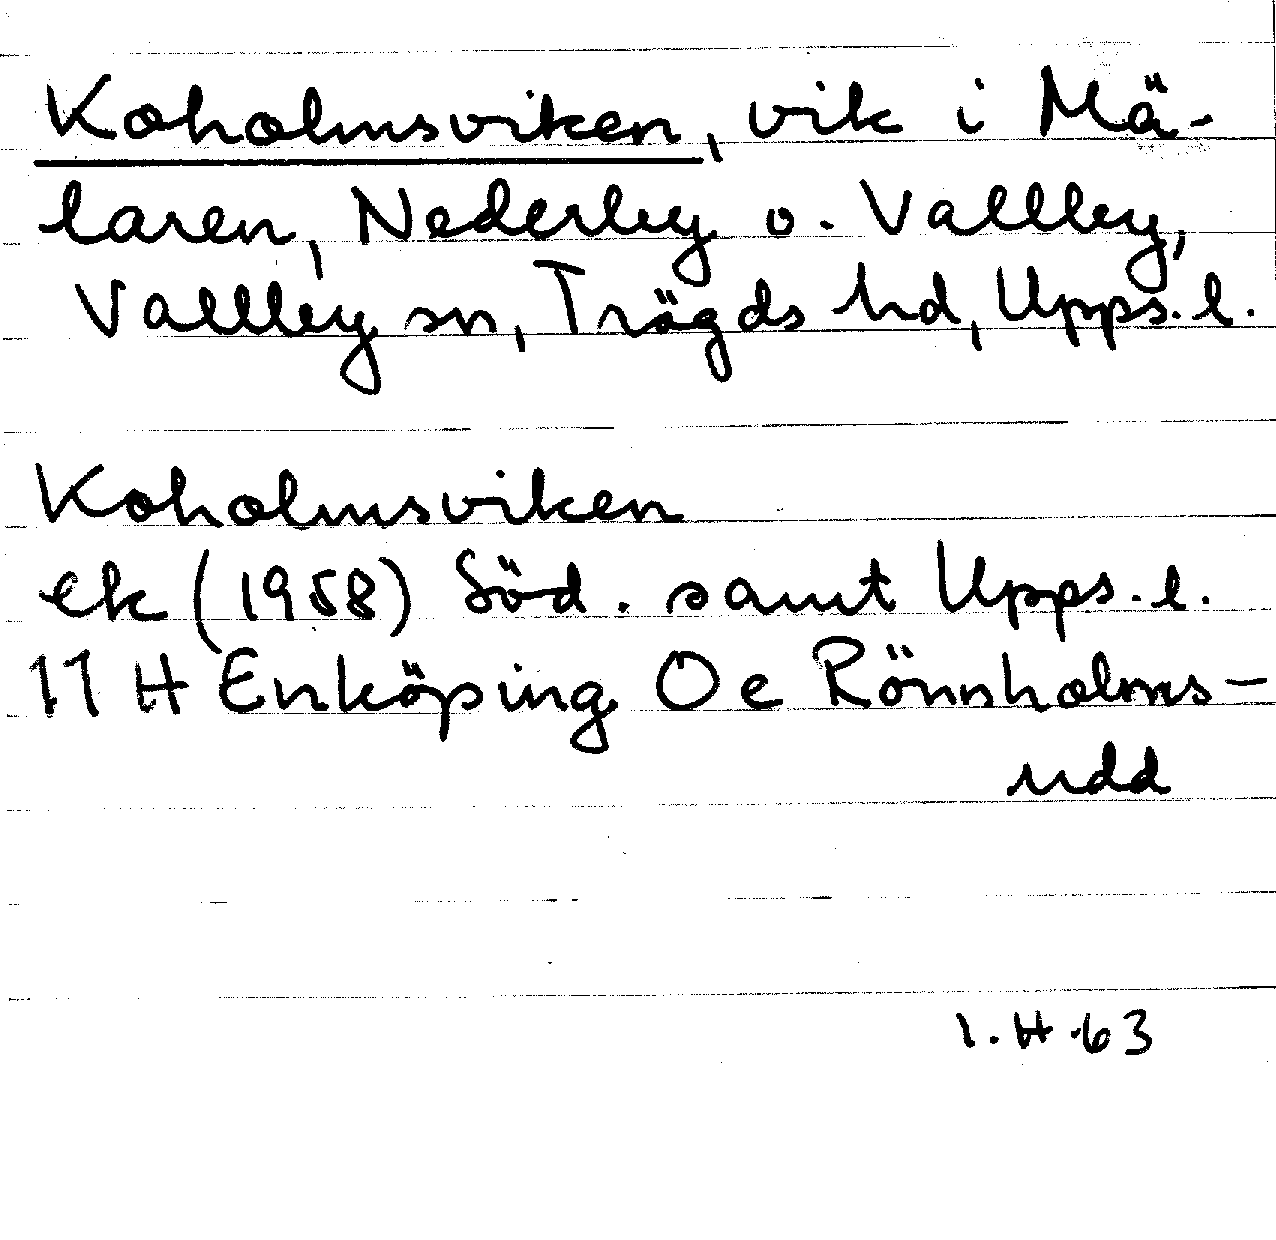 Koholmsviken, vik i Mä-
laren, Nederby o. Vallby,
Vallby sn, Trögds hd, Upps. l.
Koholmsviken
ek (1958) Söd. samt Upps. l.
11 H Enköping Oe Rönnholms-
udd
I. H -63